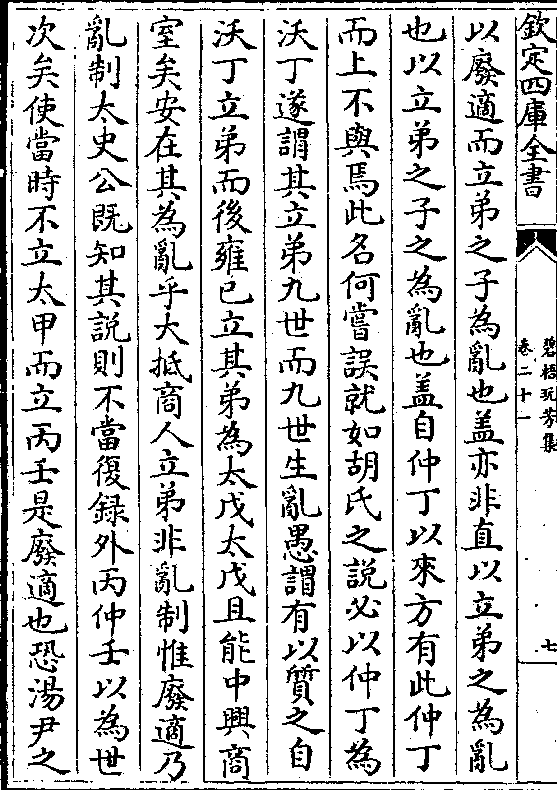 欽定四庫全書
碧梧玩芳集
卷二十一
七
以廢適而立弟之子為亂也盖亦非直以立弟之為亂
也以立弟之子之為亂也盖自仲丁以來方有此仲丁
而上不與焉此名何嘗誤就如胡氏之説必以仲丁為
沃丁遂謂其立弟九世而九世生亂愚謂有以質之自
沃丁立弟而後雍已立其弟為太戊太戊且能中興商
室矣安在其為亂乎大抵商人立弟非亂制惟廢適乃
亂制太史公既知其説則不當復録外丙仲壬以為世
次矣使當時不立太甲而立丙壬是廢適也恐湯尹之